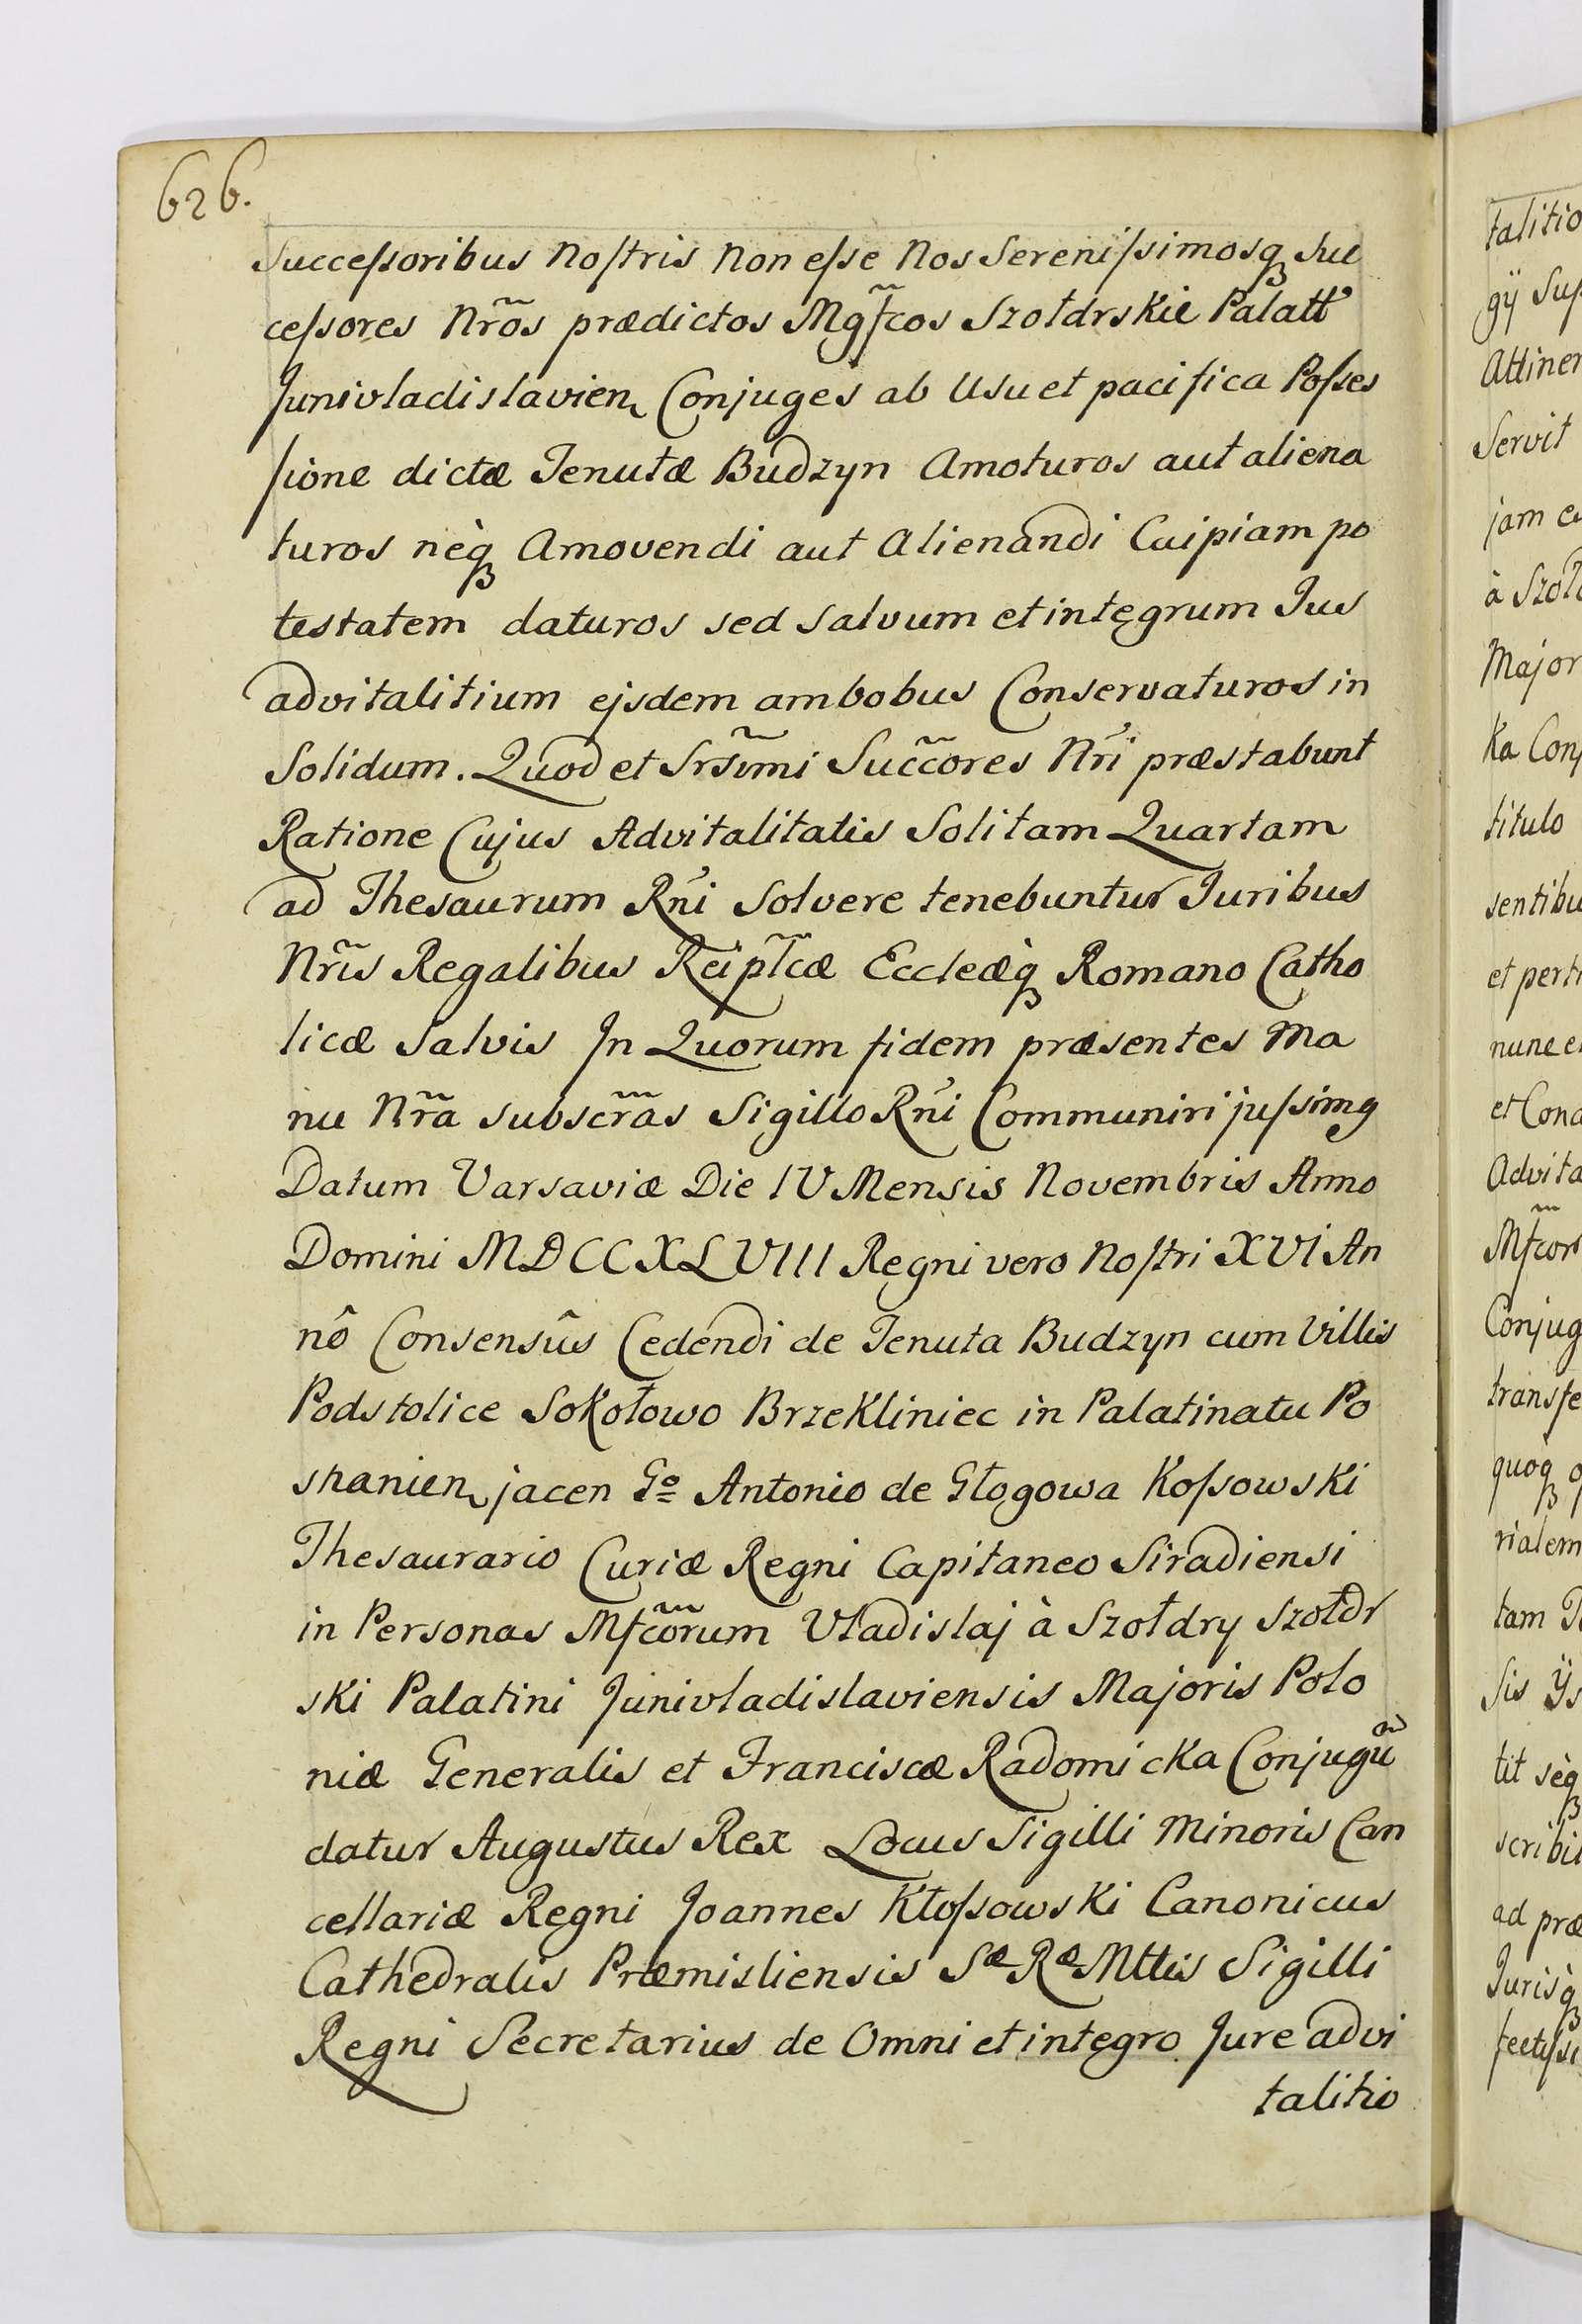 626.
Succeſsoribus Noſtris Non eſse Nos Sereniſsimosq Suc
ceſsores Nr̃os prædictos Mgf̃cos Szołdrskie Palatt
Junivladislavien Conjuges ab Usu et pacifica Poſses
ſione dictæ Tenutæ Budzyn Amoturos aut aliena
turos nèq Amovendi aut Alienandi Cuipiam po
testatem daturos sed salvum et integrum Jus
advitalitium ejsdem ambobus Conservaturos in
Solidum. Quod et Srs̃imi Succ̃ores Nr̃i præstabunt
Ratione Cujus Advitalitatis Solitam Quartam
ad Thesaurum Rñi Solvere tenebuntur Juribus
Nr̃is Regalibus Reipl̃cæ Eccleæq̀ Romano Catho
licæ Salvis Jn Quorum fidem præsentes Ma
nu Nr̃a subscr̃as Sigillo Rñi Communiri juſsimg
Datum Varsaviæ Die IV Mensis Novembris Anno
Domini MDCCXLVIII Regni vero Noſtri XVI An
nô Consensûs Cedendi de Tenuta Budzyn cum Villis
Podstolice Sokołowo Brzekliniec in Palatinatu Po
snanien jacen Go Antonio de Głogowa Koſsowski
Thesaurario Curiæ Regni Capitaneo Siradiensi
in Personas Mfc̃orum Vładislaj à Szołdry Szołdr
ski Palatini Junivladislaviensis Majoris Polo
niæ Generalis et Franciscæ Radomicka Conjugũ
datur Augustus Rex Locus Sigilli Minoris Can
cellariæ Regni Joannes Kłoſsowski Canonicus
Cathedralis Præmisliensis Sæ Ræ Mttis Sigilli
Regni Secretarius de Omni et integro Jure advi
talitio
talitio
gÿ Suſ
Attiner
Servit
jam
à Szoł
Major
Ka Conj
titulo
sentibu
et perti
nunc e
et Cond
Advita
Mf̃cor
Conjug
transfe
quoq
rialem
tam
Sis Ÿs
tit sèq
scribi
ad præ
Jurisq̀